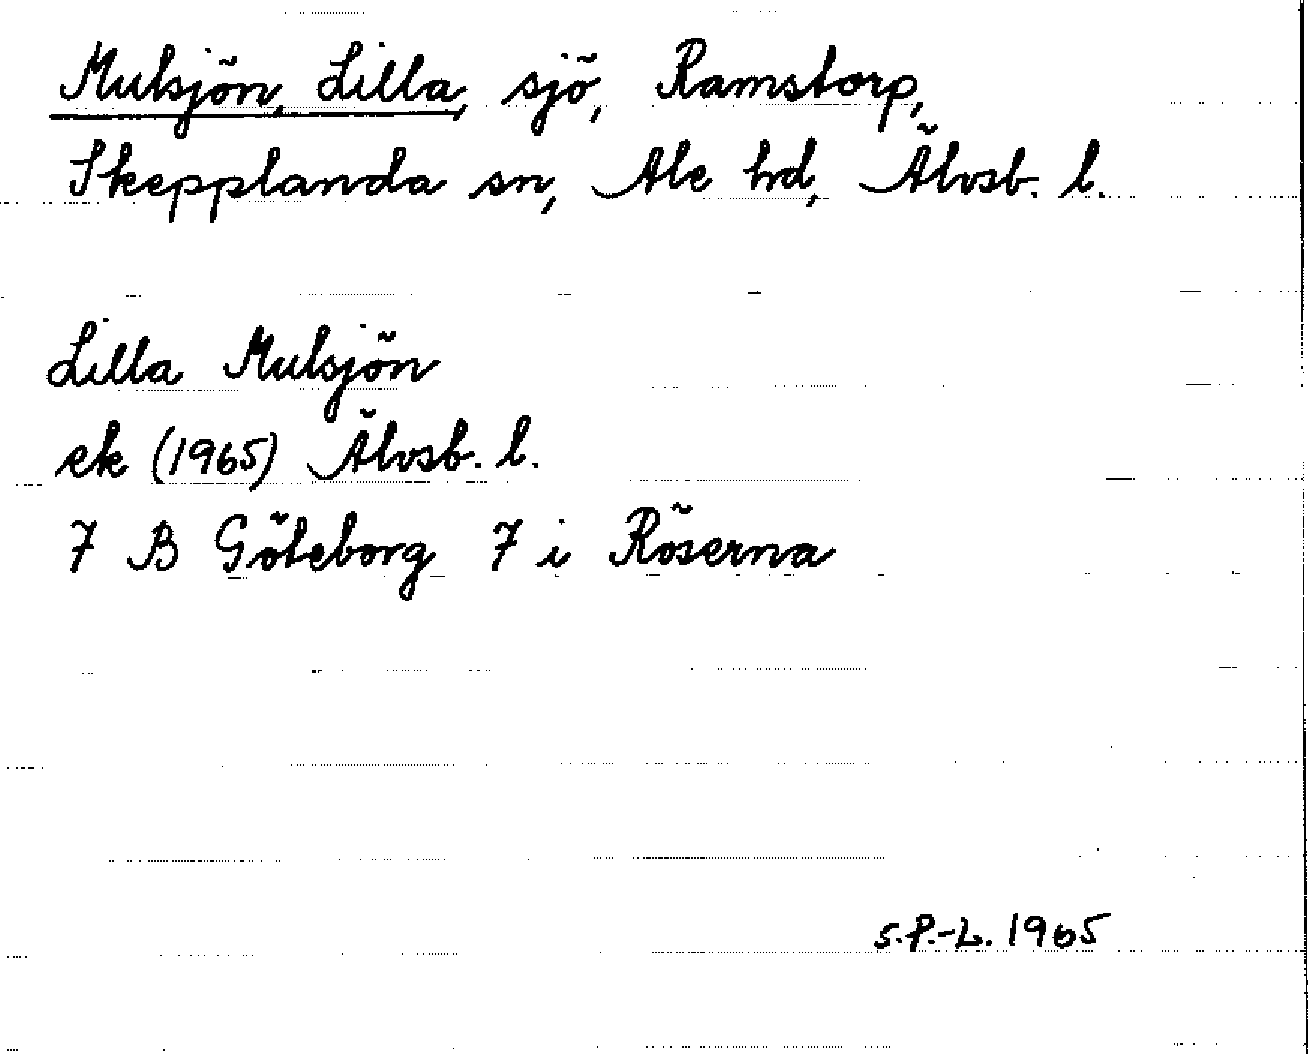 Mulsjön, Lilla, sjö, Ramstorp,
Skepplanda sn, Ale hd, Älvsb. l.
Lilla Mulsjön
ek (1965) Älvsb. l.
7 B Göteborg 7 i Röserna
S.P.-L. 1965